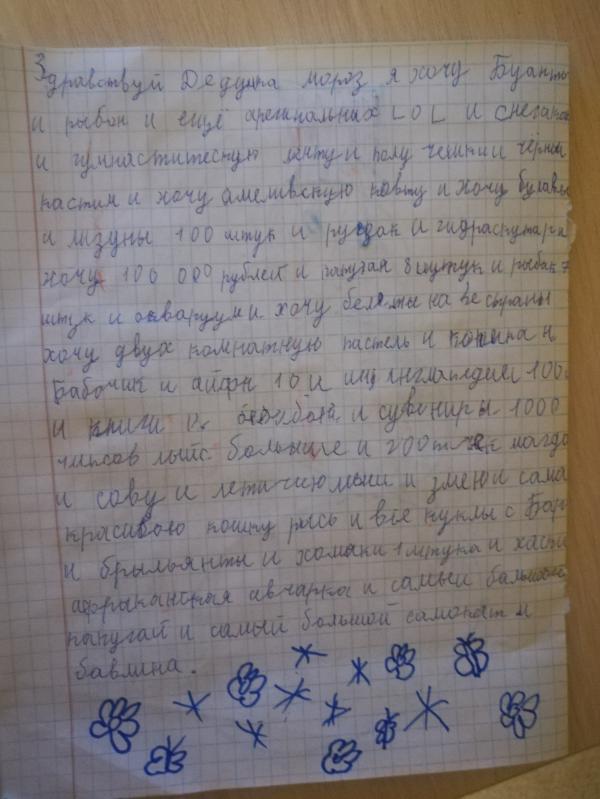 Здравствуй Дедушка мороз я хочу
и рыбок и ещё арегинальных LOL и
и гимнаститескую ленту и полу чешки и чёрный
кастим и хочу ковту и хочу булавы
и лизуны 100 штук и рюдзак и гидраскутар и
хочу 100 000 рублей и папугаи 8 штук и рыбак 7
штук и акваруум и хочу белеты на все страны
хочу двух комнатную пастель и котика и
Бабочик и айфн 10 и инглапедиеи 1000
и книги и сувениры 1000
чипсов лыйс большие и 200
и сову и летичию мыш и змею и сама
красивою кошку рысь и все куклы с Бар
и брыльянты и хомяки 1 штука и
афраканская авчарка и самый большой
папугай и самый большой самокат и
бавлина.